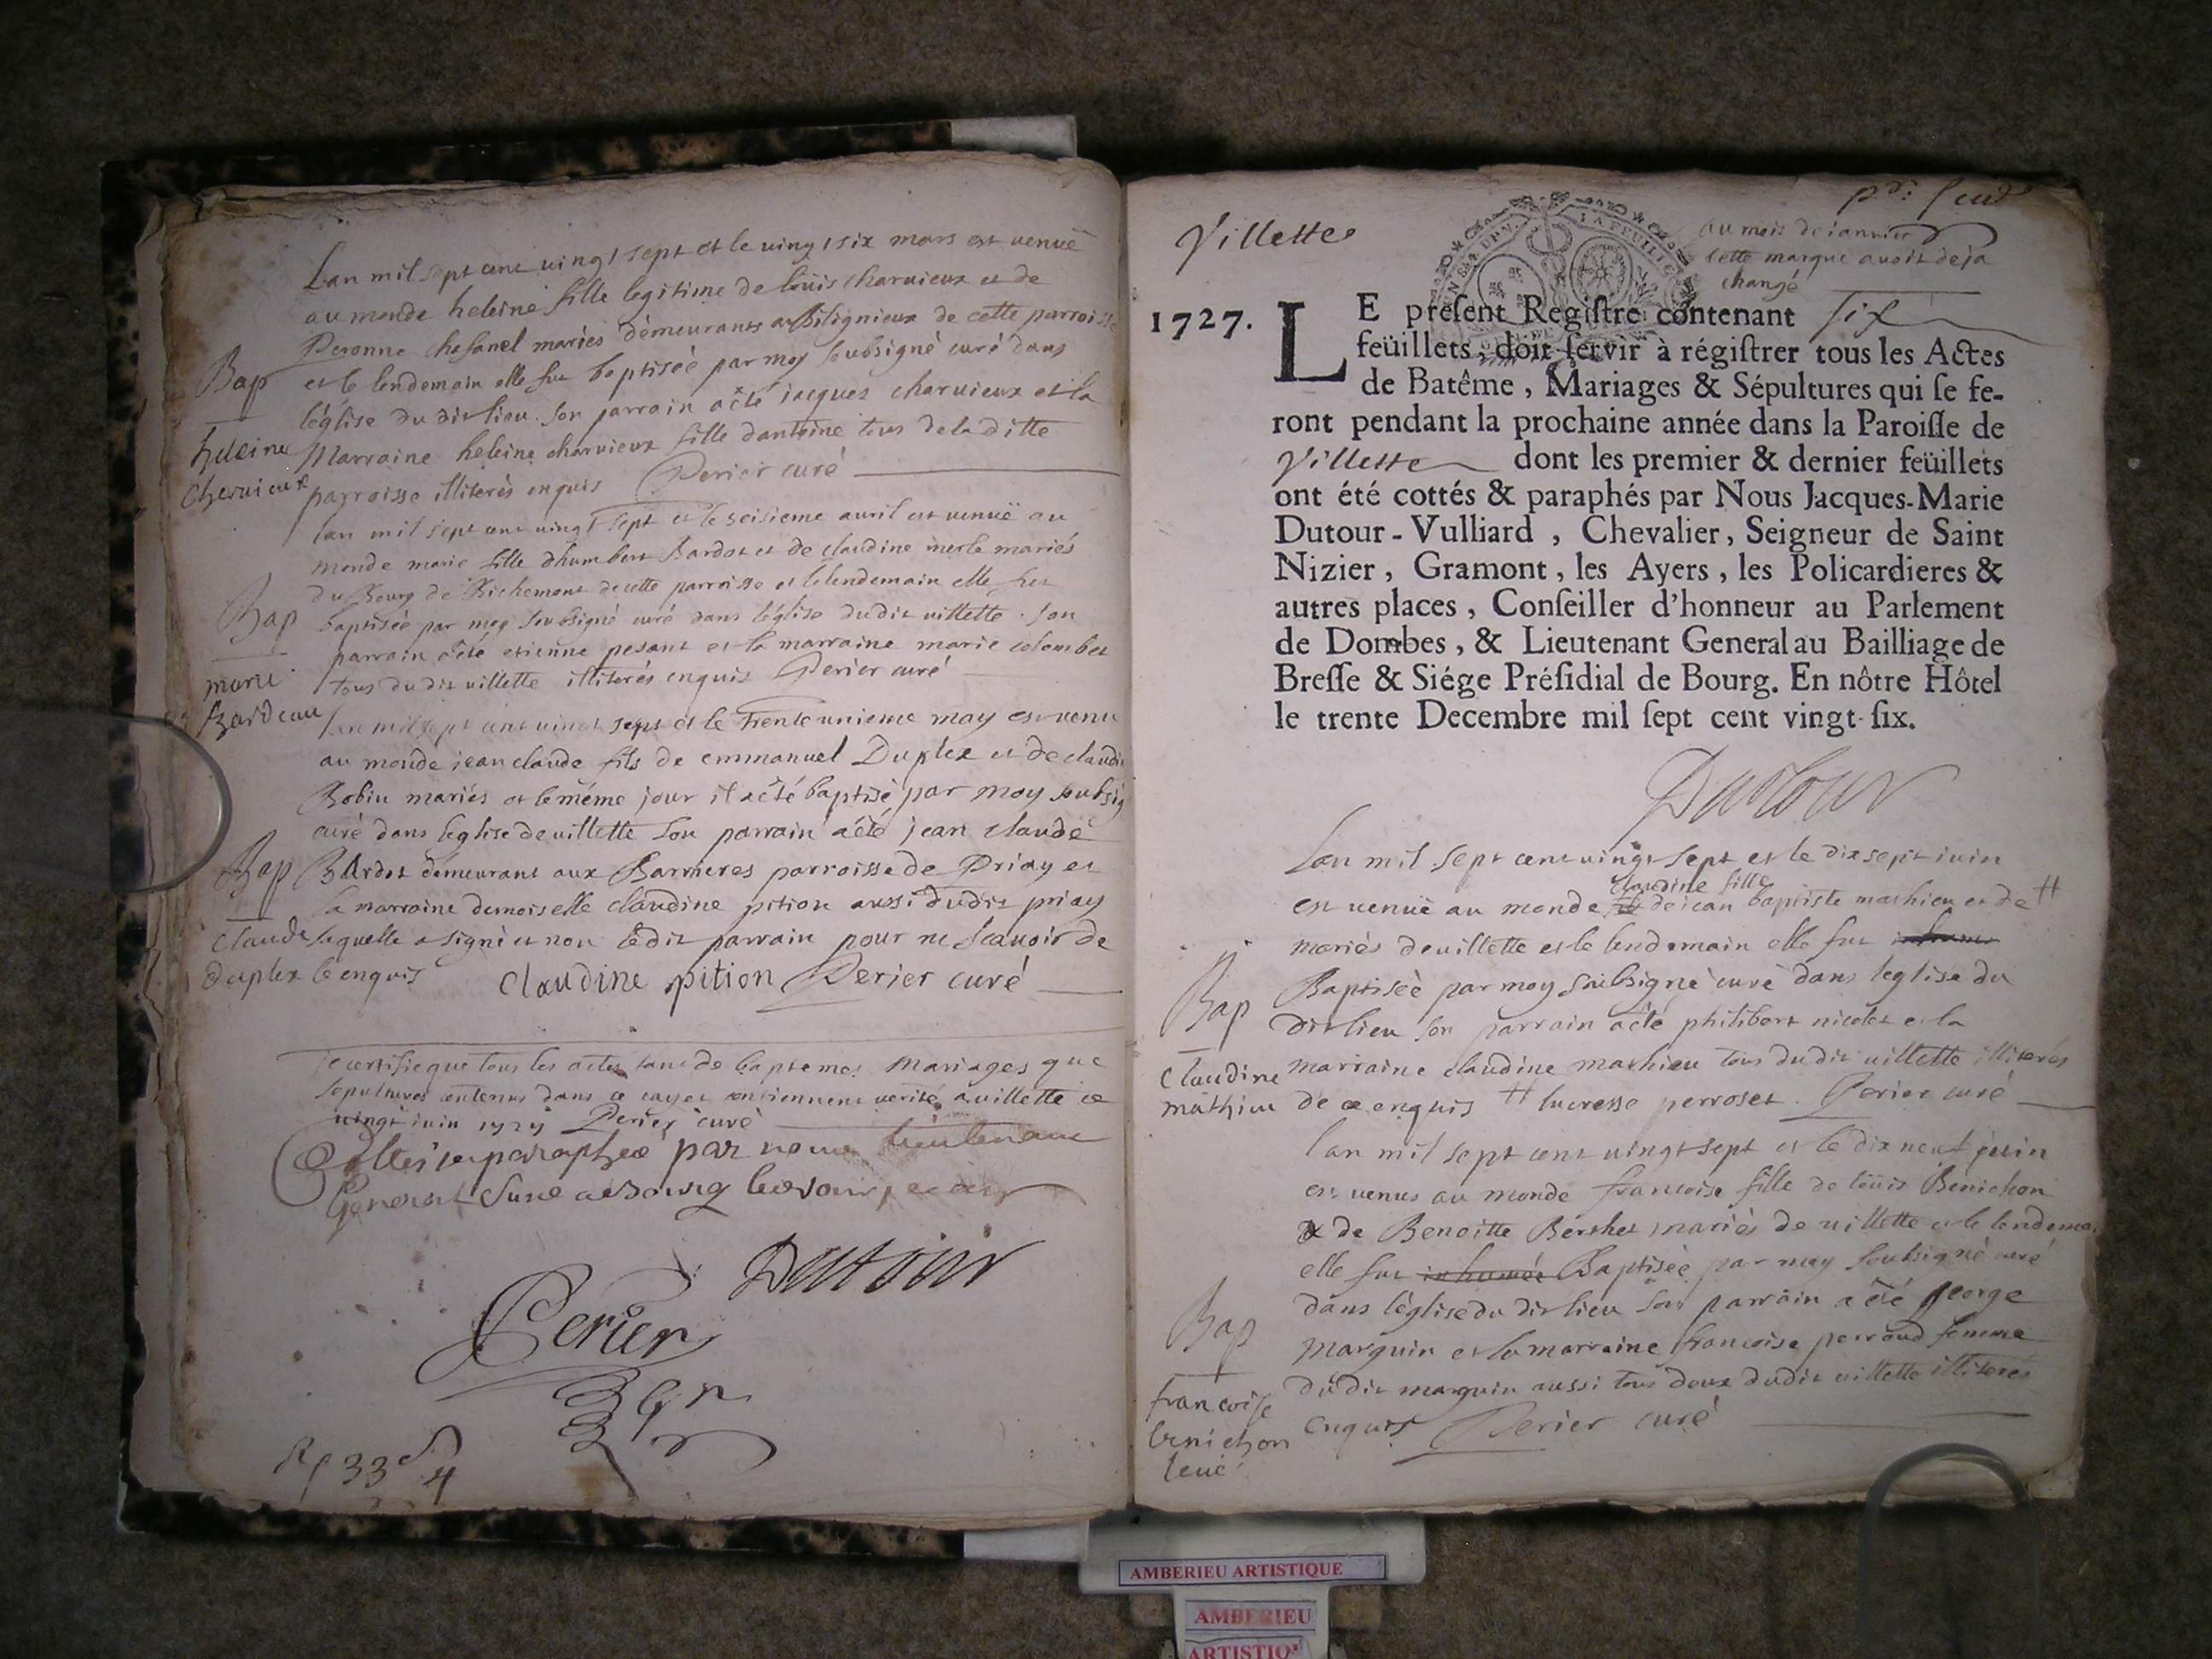 Lan mil sept cent vingt sept et le vingt six mars est venuë
au monde heleine fille legitime de loüis charvieux et de
Peronne chesanel mariés demeurants a Bilignieux de cette parroisse
et le lendemain elle fut baptiseè par moy soubsigné curé dans
l'église du dit lieu. son parrain a èté jacques charvieux et la
Marraine heleine charvieux fille dantoine tous de la ditte
parroisse illiterés enquis Perier curé
Bap
heleine
Chervieux
lan mil sept cent vingt sept et le seisieme avril est venuë au
monde marie fille dhumbert Bardot et de claudine merle mariés
du Bourg de Richemont de cette parroisse et le lendemain elle fut
baptiseè par moy soubsigné curé dans léglise du dit villette. son
parrain a èté etienne pesant et la marraine marie colombet
tous du dit villette illiterés enquis Perier curé
Bap
marie
Bardeau
lan mil sept cent vingt sept et le trente unieme may est venu
au monde jean claude fils de emmanuel Duplex et de claudi
Robin mariés et le méme jour il a èté baptisé par moy subsig
curé dans leglise de villette son parrain a èté jean claude
Bardot demeurant aux Barrieres parroisse de Priay et
la marraine demoiselle claudine pition aussi du dit priay
laquelle a signé et non le dit parrain pour ne scavoir de
ce enquis claudine pition Perier curé
Bap
Claude
duplex
je certifie que tous les actes tant de baptemes mariages que
sepultures contenus dans ce cayer contiennent verité a villette ce
vingt juin 1727 Perier curé
Cottés et paraphés par nous lieutenant
General
Dutour
Perier
33
4
Villette
au mois de ianvier
cette marque avoit deja
changé
1727. LE preſent Regiſtre contenant six
feüillets, doit ſervir à régiſtrer tous les Actes
de Batême, Mariages & Sépultures qui ſe fe-
ront pendant la prochaine année dans la Paroiſſe de
Villette dont les premier & dernier feüillets
ont été cottés & paraphés par Nous Jacques-Marie
Dutour-Vulliard, Chevalier, Seigneur de Saint
Nizier, Gramont, les Ayers, les Policardieres &
autres places, Conſeiller d'honneur au Parlement
de Dombes, & Lieutenant General au Bailliage de
Breſſe & Siége Préſidial de Bourg. En nôtre Hôtel
le trente Decembre mil ſept cent vingt-ſix.
Dutour
Lan mil sept cent vingt sept et le dix sept iuin
claudine fille
est venuë au monde de iean baptiste mathieu et de #
mariés de villette et le lendemain elle fut
Baptiseè par moy soubsigné curé dans leglise du
dit lieu son parrain a èté philibert nicolet et la
marraine claudine mathieu tous du dit villette illiterés
de ce enquis # lucresse perroset. Perier curé
Bap
Claudine
mathieu
lan mil sept cent vingt sept et le dix neuf juin
est venus au monde francoise fille de loüis Benichon
& de Benoitte Berthet mariés de villette et le lendemai
elle fut inhumée Baptiseè par moy soubsigné curé
dans l'église du dit lieu son parrain a èté george
Marguin et la marraine francoise perraud femme
du dit marguin aussi tous deux dudit villette illiteres
enquis Perier curé
Bap
francoise
benichon
AMBERIEU ARTISTIQUE
AMBERIEU
ARTISTIQ